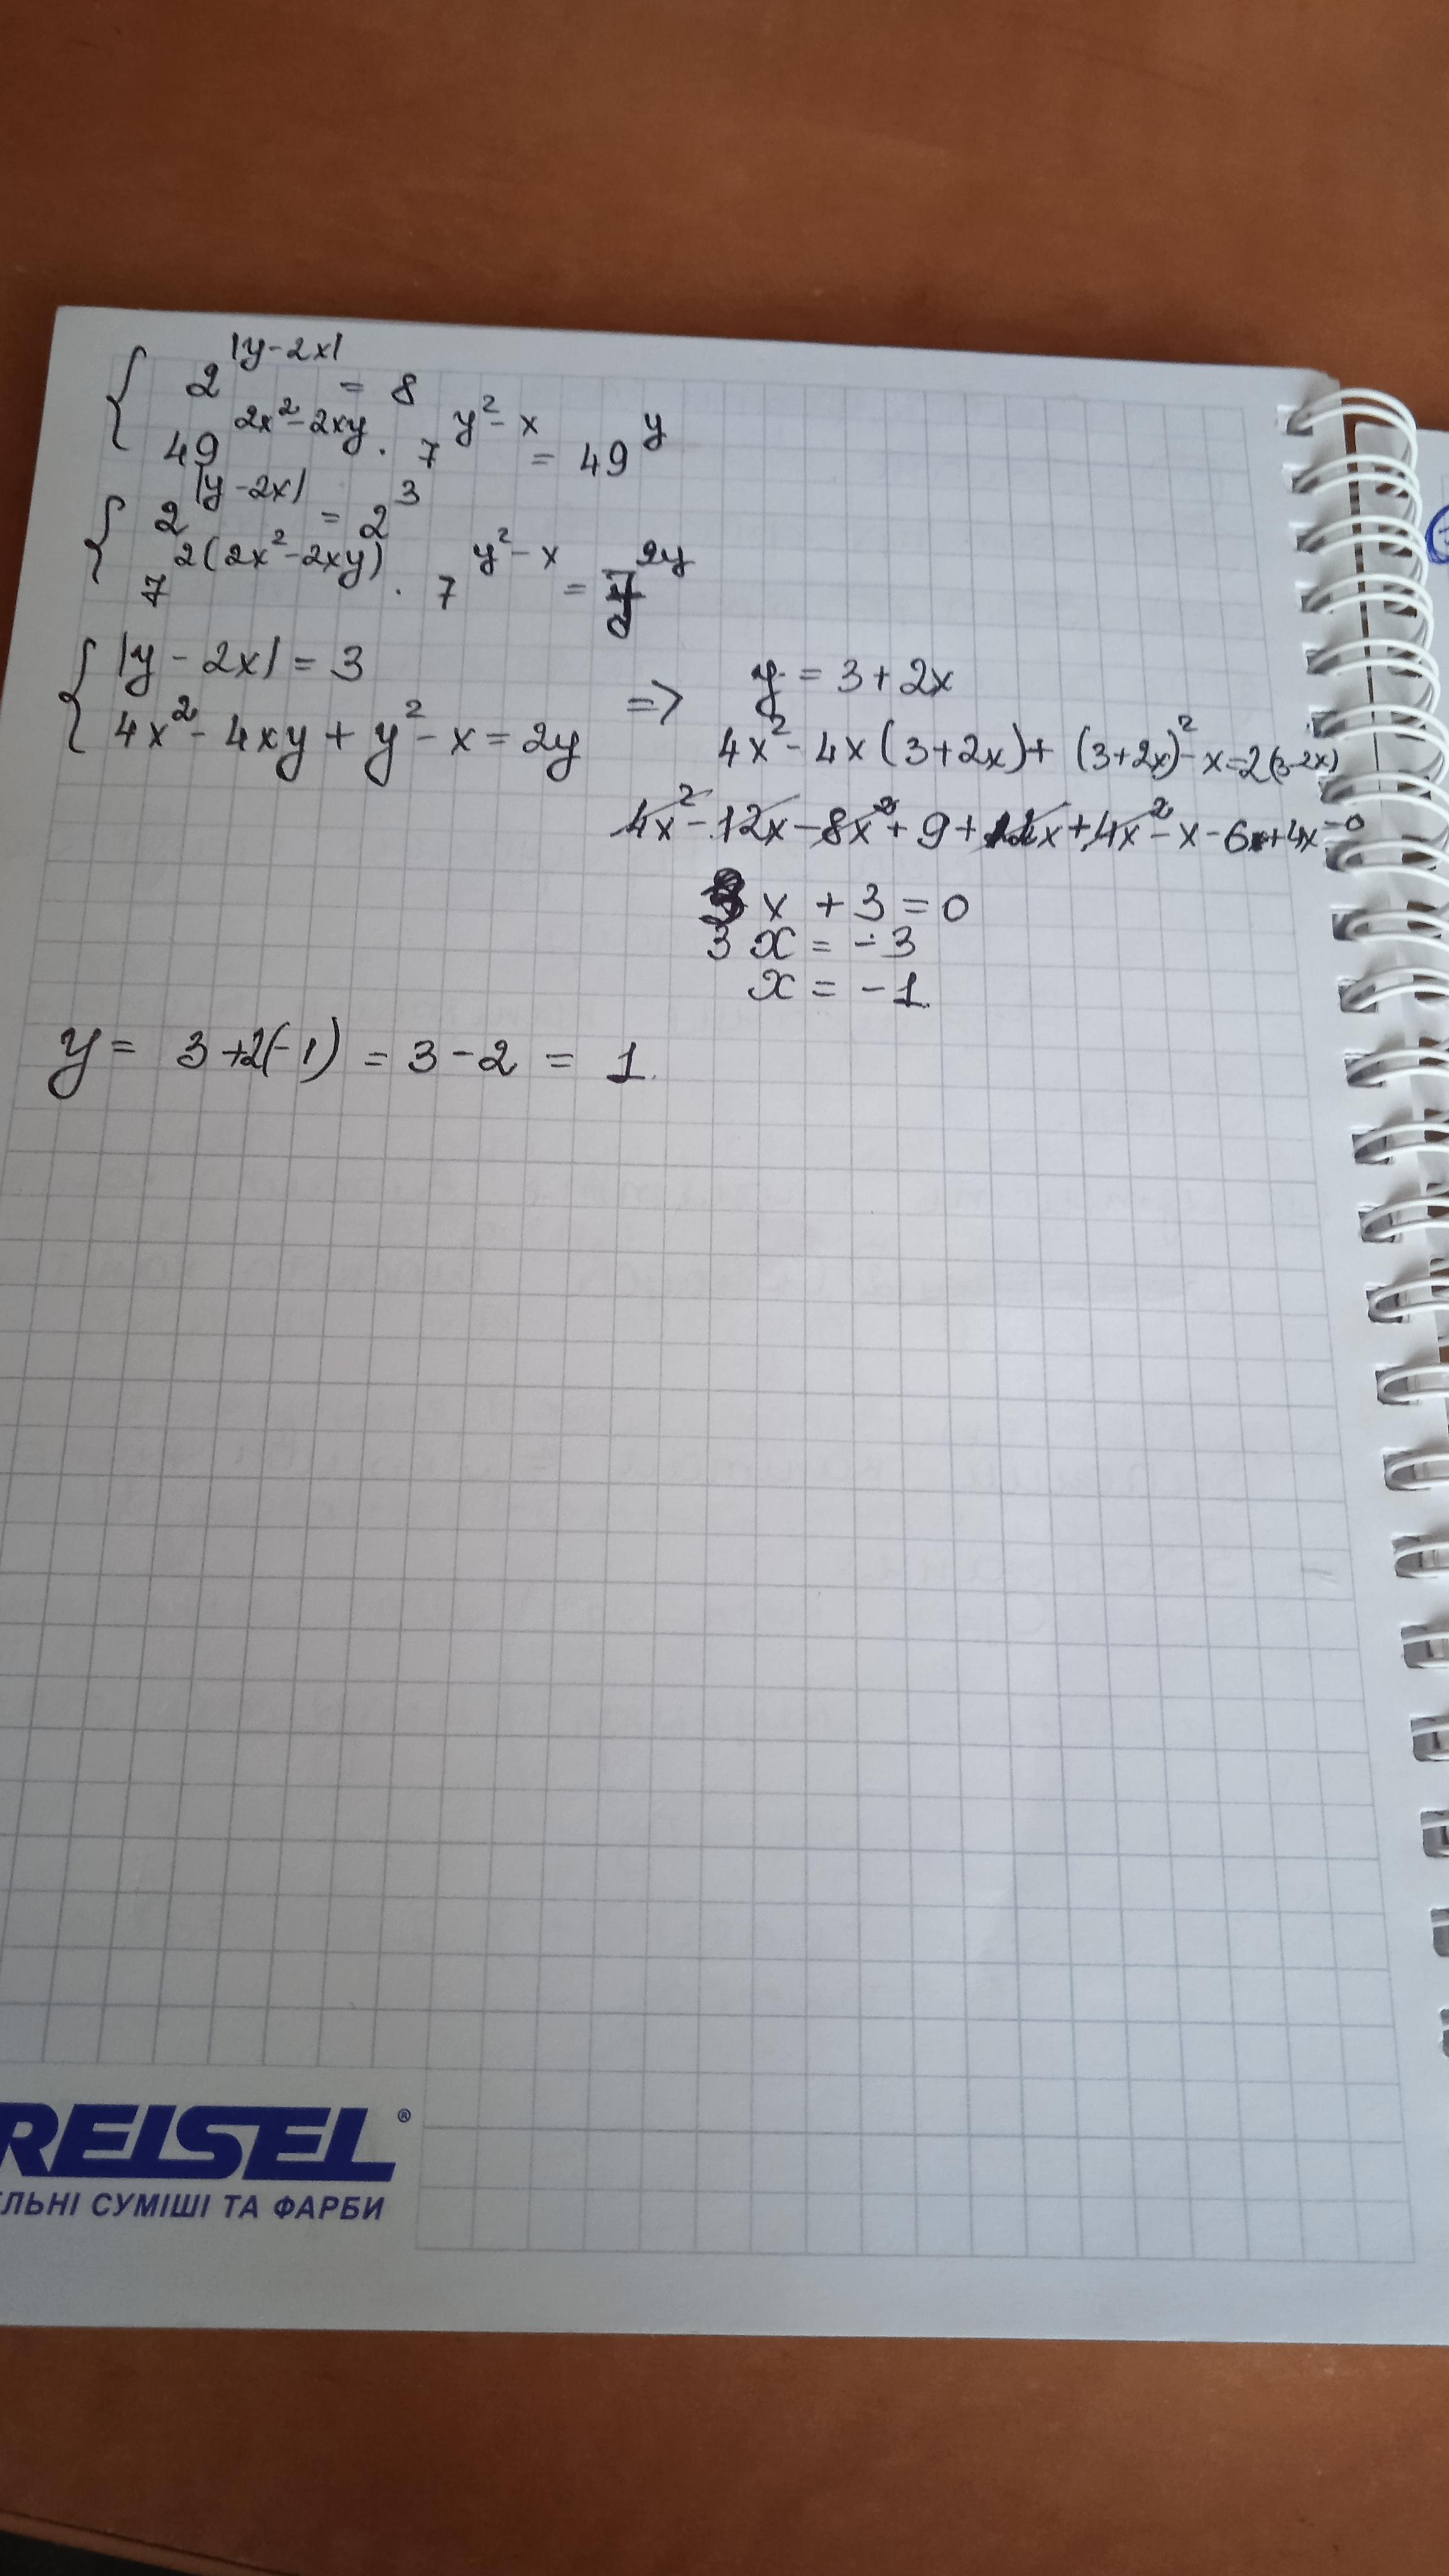 { 2^|y-2x| = 8
49^(2x²-2xy) · 7^(y²-x) = 49^y
{ 2^|y-2x| = 2³
7^(2(2x²-2xy)) · 7^(y²-x) = 7^(2y)
{ |y-2x| = 3 => y = 3+2x
4x²-4xy+y²-x=2y 4x²-4x(3+2x)+(3+2x)²-x=2(3-2x)
4x²-12x-8x²+9+12x+4x²-x-6+4x=0
3x+3=0
3x=-3
x=-1
y= 3+2(-1) = 3-2 = 1.
REISEL®
ЕЛЬНІ СУМІШІ ТА ФАРБИ